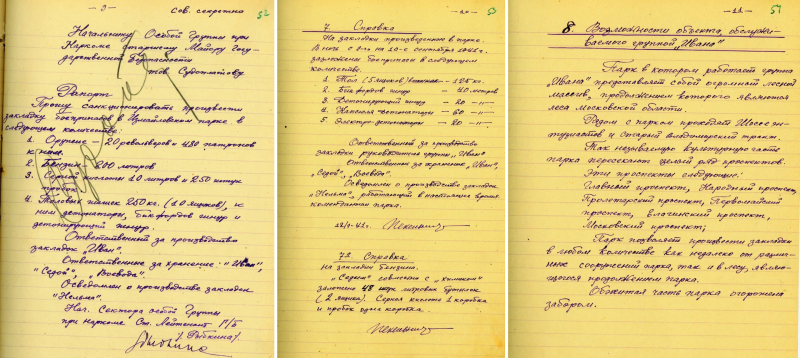 - 9 -
Сов. секретно
52
Начальнику Особой Группы при
Наркоме старшему Майору Госу-
дарственной Безопасности
тов Судоплатову
Рапорт
Прошу санкционировать произвести
закладку боеприпасов в Измайловском парке в
следующем количестве:
1. Оружие – 20 револьверов и 480 патронов
к ним.
2. Бензин – 200 литров
3. Серной кислоты 10 литров и 250 штук
пробок
4. Толовых шашек 250 кг. (10 ящиков), к
ним детонаторы, бикфордов шнур и
детонирующий шнур.
Ответственный за производство
закладок „Иван".
Ответственные за хранение: „Иван",
„Седой", „Воевода".
Осведомлен о производстве закладок
„Нельма".
Нач. Сектора особой Группы
при наркоме Ст. Лейтенант Г/Б
/Рыбкина/.
53
7. Справка
На закладки произведенные в парке.
в количестве.
1. Тол (5 ящиков) - 125 кг.
2. Бикфордов шнур — 40 литров
3. Детонирующий шнур — 20 –"–
— 60 –"–
5. Электро-детонаторы — 20 –"–
Ответственный за производство
закладки руководитель группы „Иван"
Ответственные за хранение „Иван",
„Седой", „Воевода".
Осведомлен о производстве закладок
„Нельма", работающий в настоящее время
комендантом парка.
72 Справка
на закладки бензина.
„Седым" совместно с „Химиком"
заложены 48 штук литровых бутылок
(2 ящика). Серная кислота 1 коробка
и пробок одна коробка.
- 11 -
51
8. Возможности объекта, обслужи-
ваемого группой „Ивана"
Парк в котором работает группа
„Ивана" представляет собой огромный лесной
массив, продолжением которого являются
леса Московской области.
Рядом с парком проходят Шоссе эн-
тузиастов и старый владимирский тракт.
Так называемую культурную часть
парка пересекают целый ряд проспектов.
Эти проспекты следующие:
Главный проспект, Народный проспект,
Пролетарский проспект, Первомайский
проспект, проспект,
Московский проспект;
Парк позволяет произвести закладки
в любом количестве как недалеко от различ-
ных сооружений парка, так и в лесу, являю-
щегося продолжением парка.
Обжитая часть парка огорожена
забором.